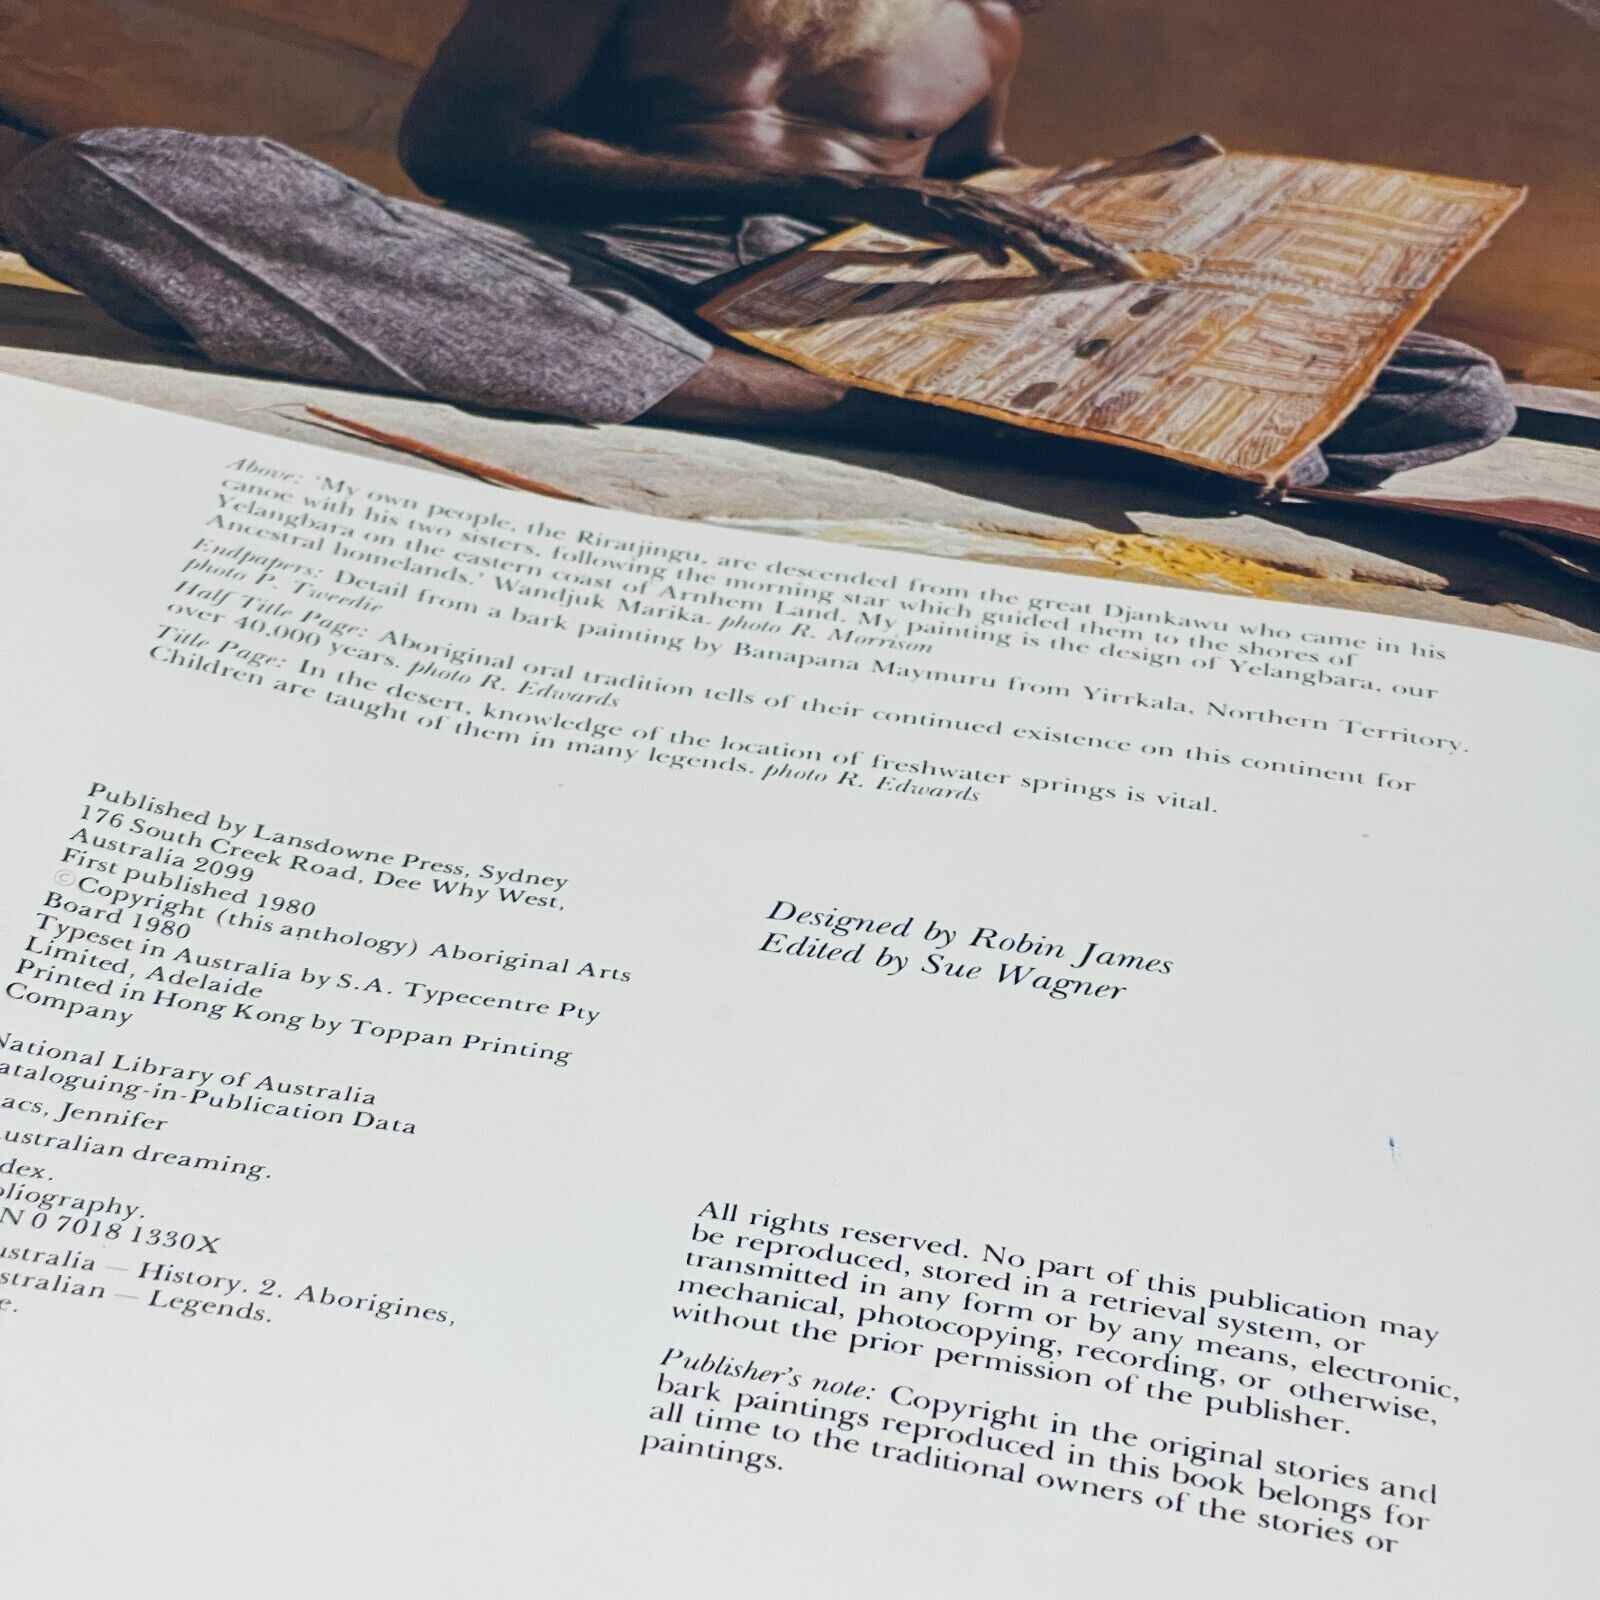 Above: 'My own people, the Riratjingu, are descended from the great Djankawu who came in his
canoe with his two sisters, following the morning star which guided them to the shores of
Yelangbara on the eastern coast of Arnhem Land. My painting is the design of Yelangbara, our
Ancestral homelands.' Wandjuk Marika. photo R. Morrison
Endpapers: Detail from a bark painting by Banapana Maymuru from Yirrkala, Northern Territory.
photo P. Tweedie
Half Title Page: Aboriginal oral tradition tells of their continued existence on this continent for
over 40,000 years. photo R. Edwards
Title Page: In the desert, knowledge of the location of freshwater springs is vital.
Children are taught of them in many legends. photo R. Edwards
Published by Lansdowne Press, Sydney
176 South Creek Road, Dee Why West,
Australia 2099
First published 1980
©Copyright (this anthology) Aboriginal Arts
Board 1980
Typeset in Australia by S.A. Typecentre Pty
Limited, Adelaide
Printed in Hong Kong by Toppan Printing
Company
National Library of Australia
ataloguing-in-Publication Data
acs, Jennifer
ustralian dreaming.
dex.
liography.
N 0 7018 1330X
ustralia — History. 2. Aborigines,
stralian — Legends.
e.
Designed by Robin James
Edited by Sue Wagner
All rights reserved. No part of this publication may
be reproduced, stored in a retrieval system, or
transmitted in any form or by any means, electronic,
mechanical, photocopying, recording, or otherwise,
without the prior permission of the publisher.
Publisher's note: Copyright in the original stories and
bark paintings reproduced in this book belongs for
all time to the traditional owners of the stories or
paintings.